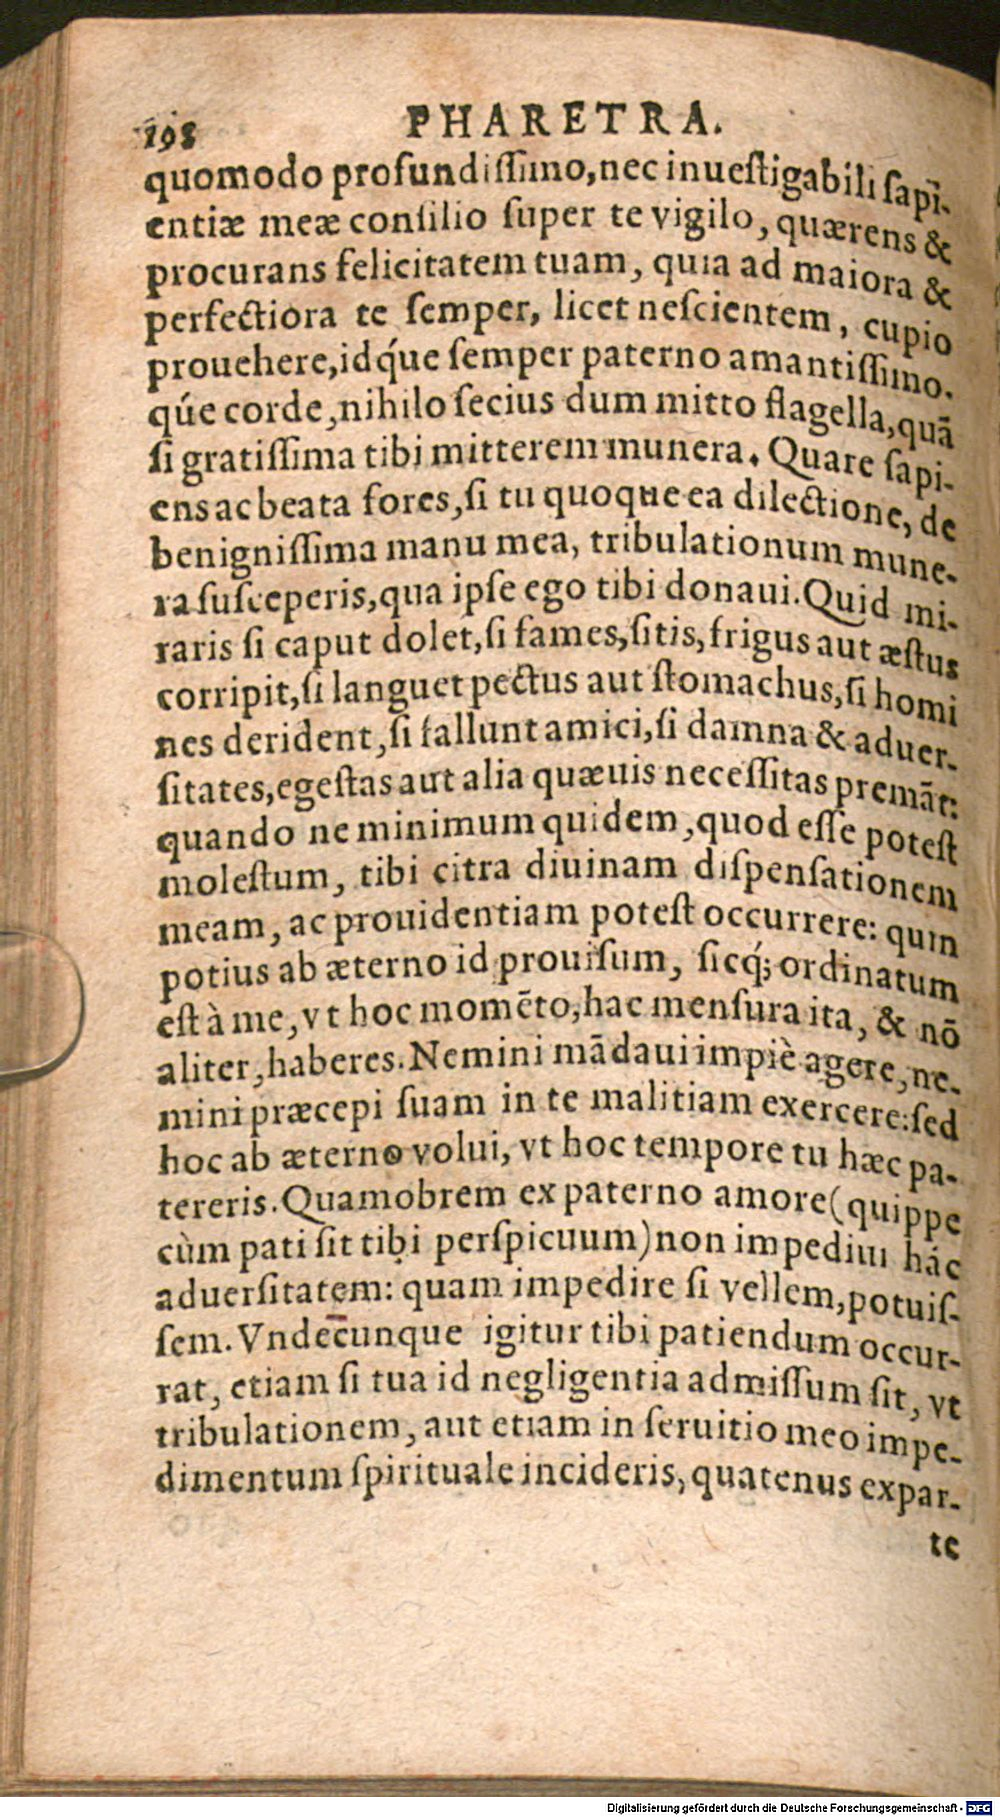 198 PHARETRA.
quomodo profundiſſimo, nec inueſtigabili ſapi-
entiæ meæ conſilio ſuper te vigilo, quærens &
procurans felicitatem tuam, quia ad maiora &
perfectiora te ſemper, licet neſcientem, cupio
prouehere, idq́ue ſemper paterno amantiſſimo.
q́ue corde, nihilo ſecius dum mitto flagella, quā
ſi gratiſſima tibi mitterem munera. Quare ſapi-
ens ac beata fores, ſi tu quoque ea dilectione, de
benigniſſima manu mea, tribulationum mune-
ra ſuſceperis, qua ipſe ego tibi donaui. Quid mi-
raris ſi caput dolet, ſi fames, ſitis, frigus aut æſtus
corripit, ſi languet pectus aut ſtomachus, ſi homi
nes derident, ſi fallunt amici, ſi damna & aduer-
ſitates, egeſtas aut alia quæuis neceſſitas premāt:
quando ne minimum quidem, quod eſſe poteſt
moleſtum, tibi citra diuinam diſpenſationem
meam, ac prouidentiam poteſt occurrere: quin
potius ab æterno id prouiſum, ſicq́; ordinatum
eſt à me, vt hoc momēto, hac menſura ita, & nō
aliter, haberes. Nemini mādaui impiè agere, ne-
mini præcepi ſuam in te malitiam exercere: ſed
hoc ab æterno volui, vt hoc tempore tu hæc pa-
tereris. Quamobrem ex paterno amore (quippe
cùm pati ſit tibi perſpicuum) non impediui hác
aduerſitatem: quam impedire ſi vellem, potuiſ-
ſem. Vndecunque igitur tibi patiendum occur-
rat, etiam ſi tua id negligentia admiſſum ſit, vt
tribulationem, aut etiam in ſeruitio meo impe-
dimentum ſpirituale incideris, quatenus ex par-
te
Digitalisierung gefördert durch die Deutsche Forschungsgemeinschaft - DFG